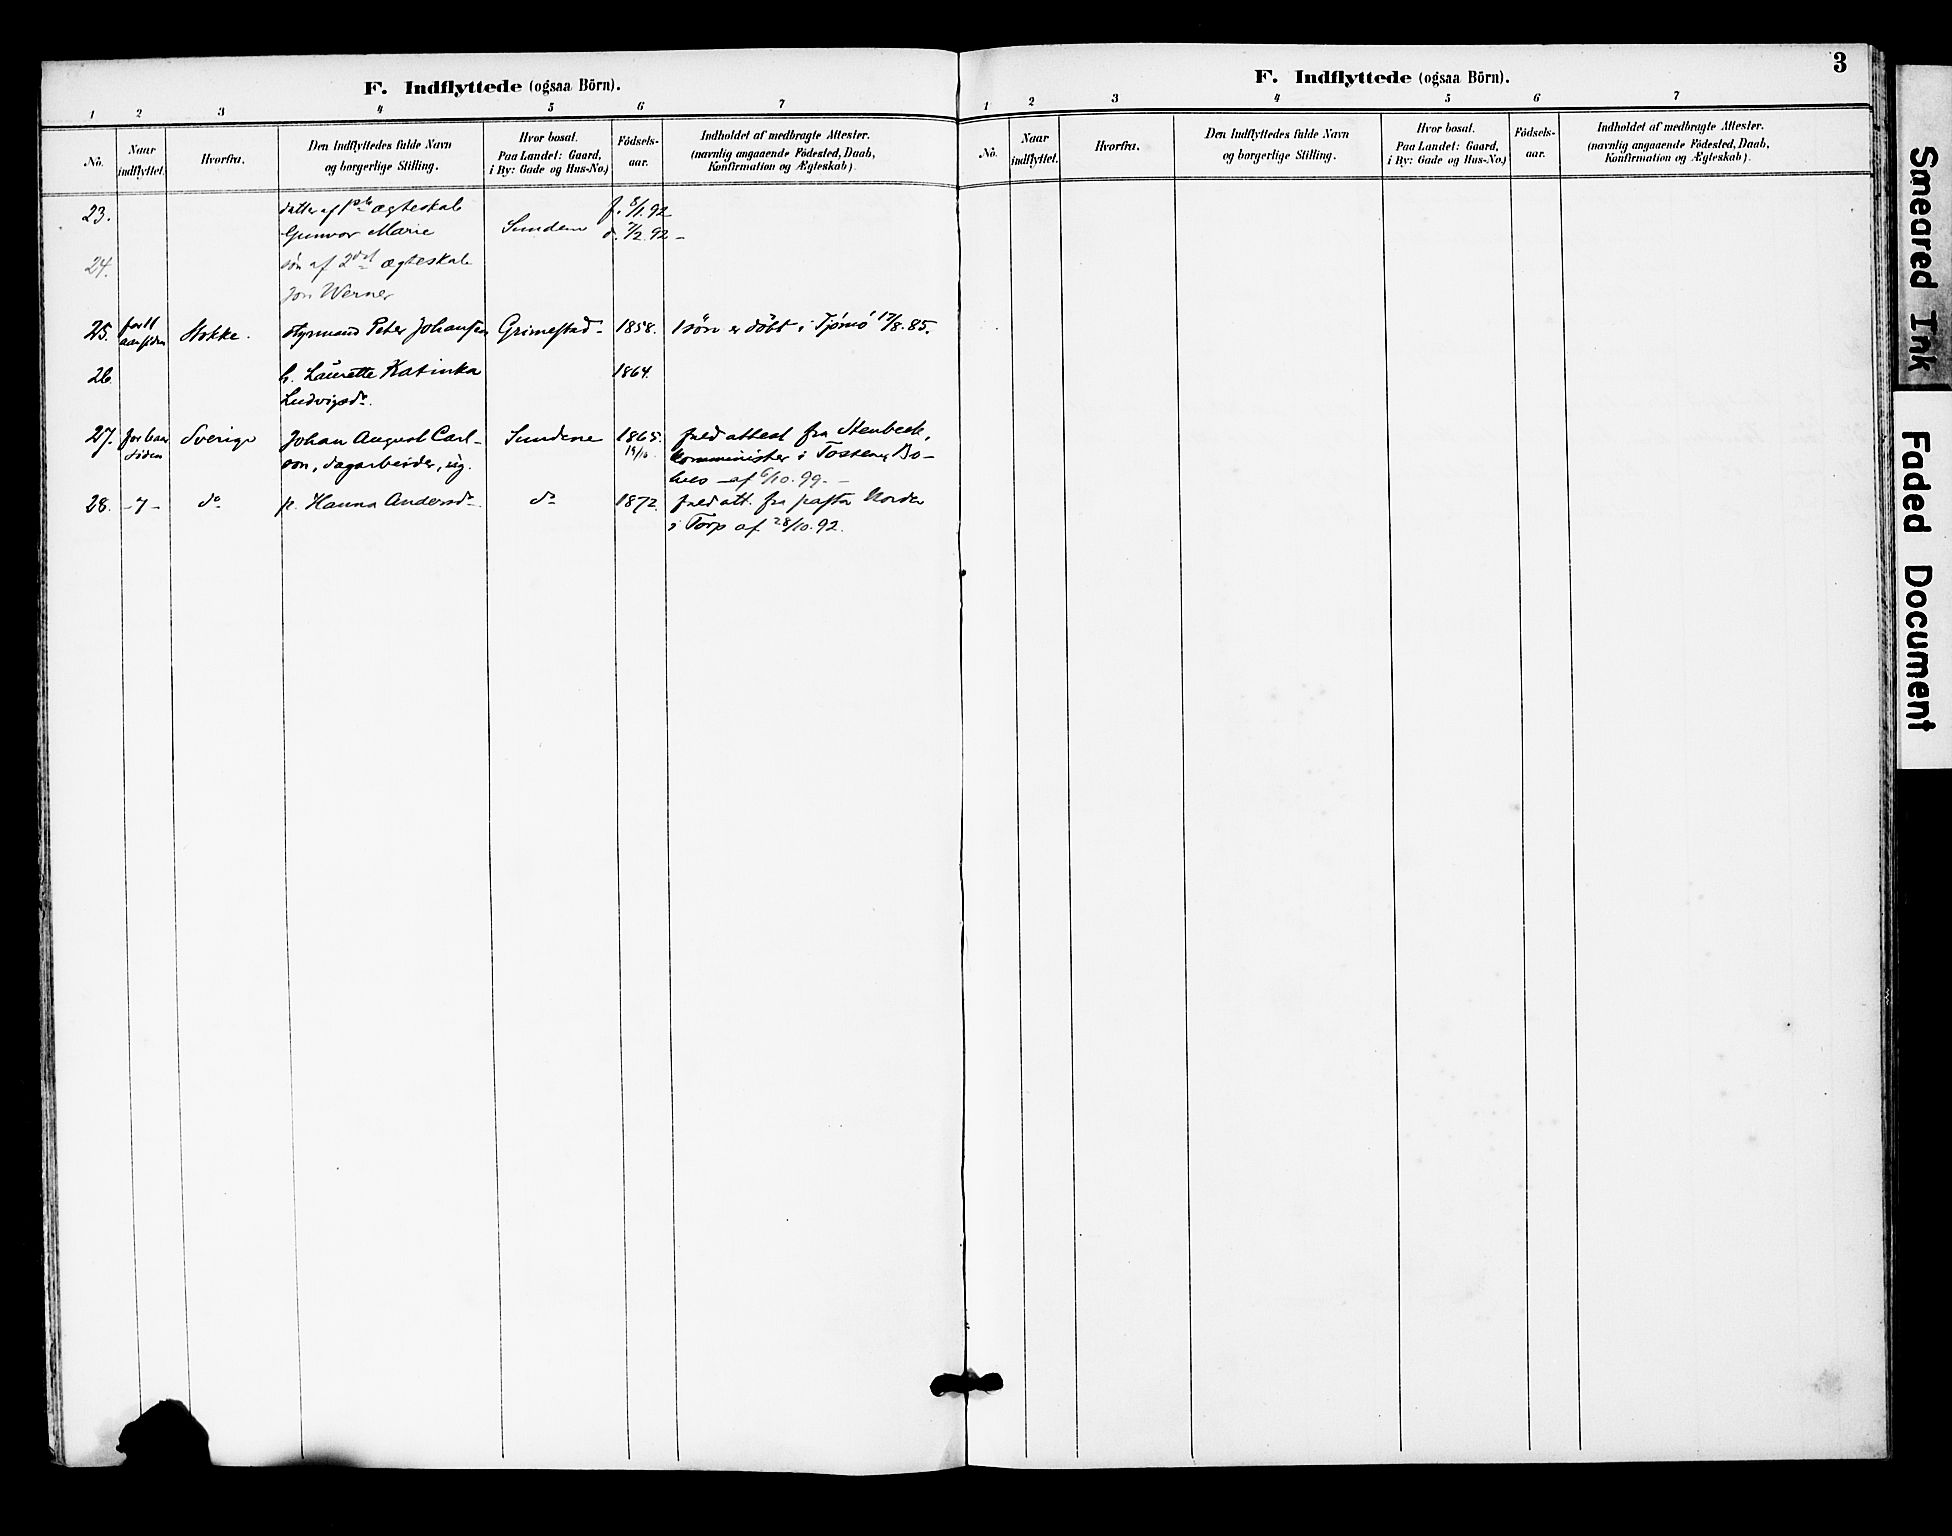 F. Indflyttede (ogsaa Börn).
1 2 3 4 5 6 7
No.
Naar indflyttet.
Hvorfra.
Den Indflyttedes fulde Navn og borgerlige Stilling.
Hvor bosat. Paa Landet: Gaard, i By: Gade og Hus-No.)
Födsels-aar.
Indholdet af medbragte Attester. (navnlig angaaende Födested, Daab, Konfirmation og Ægteskab).
23. datter af ægteskab f. 8/1.92
Gunvor Marie Sundene d. 7/2.92 -
24. søn af 2det ægteskab
Jon Werner
25. for 11 Stokke. styrmand Peter Johansen Grimestad - 1858. 1 søn er döbt i Tjömö 17/8.85.
aar siden
26. h. Laurette Katinka 1864.
Ludvigsdr.
27. for 6 aar Sverige Johan August Carl- Sundene 1865. fred attest fra Stenbeck,
siden son, dagarbeider, ug. 19/10. Komminister i Tossene, Bo-
hus - af 6/10.99. -
28. -7- do p. Hanna Andersdr. do 1872. fred att. fra pastor Norder
i Torp af 28/10.92.
3
F. Indflyttede (ogsaa Börn).
1 2 3 4 5 6 7
No.
Naar indflyttet.
Hvorfra.
Den Indflyttedes fulde Navn og borgerlige Stilling.
Hvor bosat. Paa Landet: Gaard, i By: Gade og Hus-No.)
Födsels-aar.
Indholdet af medbragte Attester. (navnlig angaaende Födested, Daab, Konfirmation og Ægteskab).
Smeared Ink
Faded Document